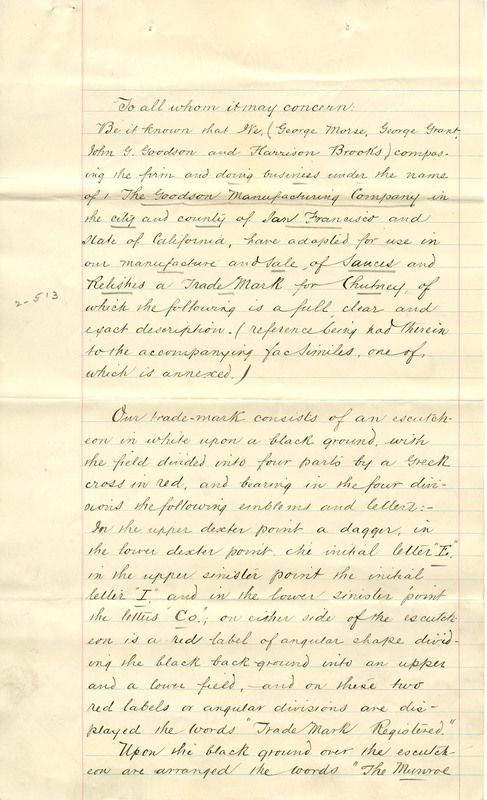 To all whom it may concern:
Be it known that We, (George Morse, George Grant,
John G. Goodson and Harrison Brooks) compos-
ing the firm and doing business under the name
of The Goodson Manufacturing Company in
the city and county of San Francisco and
State of California, have adapted for use in
our manufacture and sale, of Sauces and
Relishes a Trade Mark for Chutney, of
2-513
which the following is a full, clear and
exact description. (reference being had therein
to the accompanying facsimiles, one of,
which is annexed.)
Our trade-mark consists of an escutch-
eon in white upon a black ground, with
the field divided into four parts by a Greek
cross in red, and bearing in the four divi-
sions the following emblems and letters:-
In the upper dexter point a dagger, in
the lower dexter point, the initial letter "E,"
in the upper sinister point the initial
letter "I," and in the lower sinister point
the letters "Co."; on either side of the escutch-
eon is a red label of angular shape divid-
ing the black back ground into an upper
and a lower field, - and on these two
red labels or angular divisions are dis-
played the words "Trade Mark Registered."
Upon the black ground over the escutch-
eon are arranged the words "The Munroe